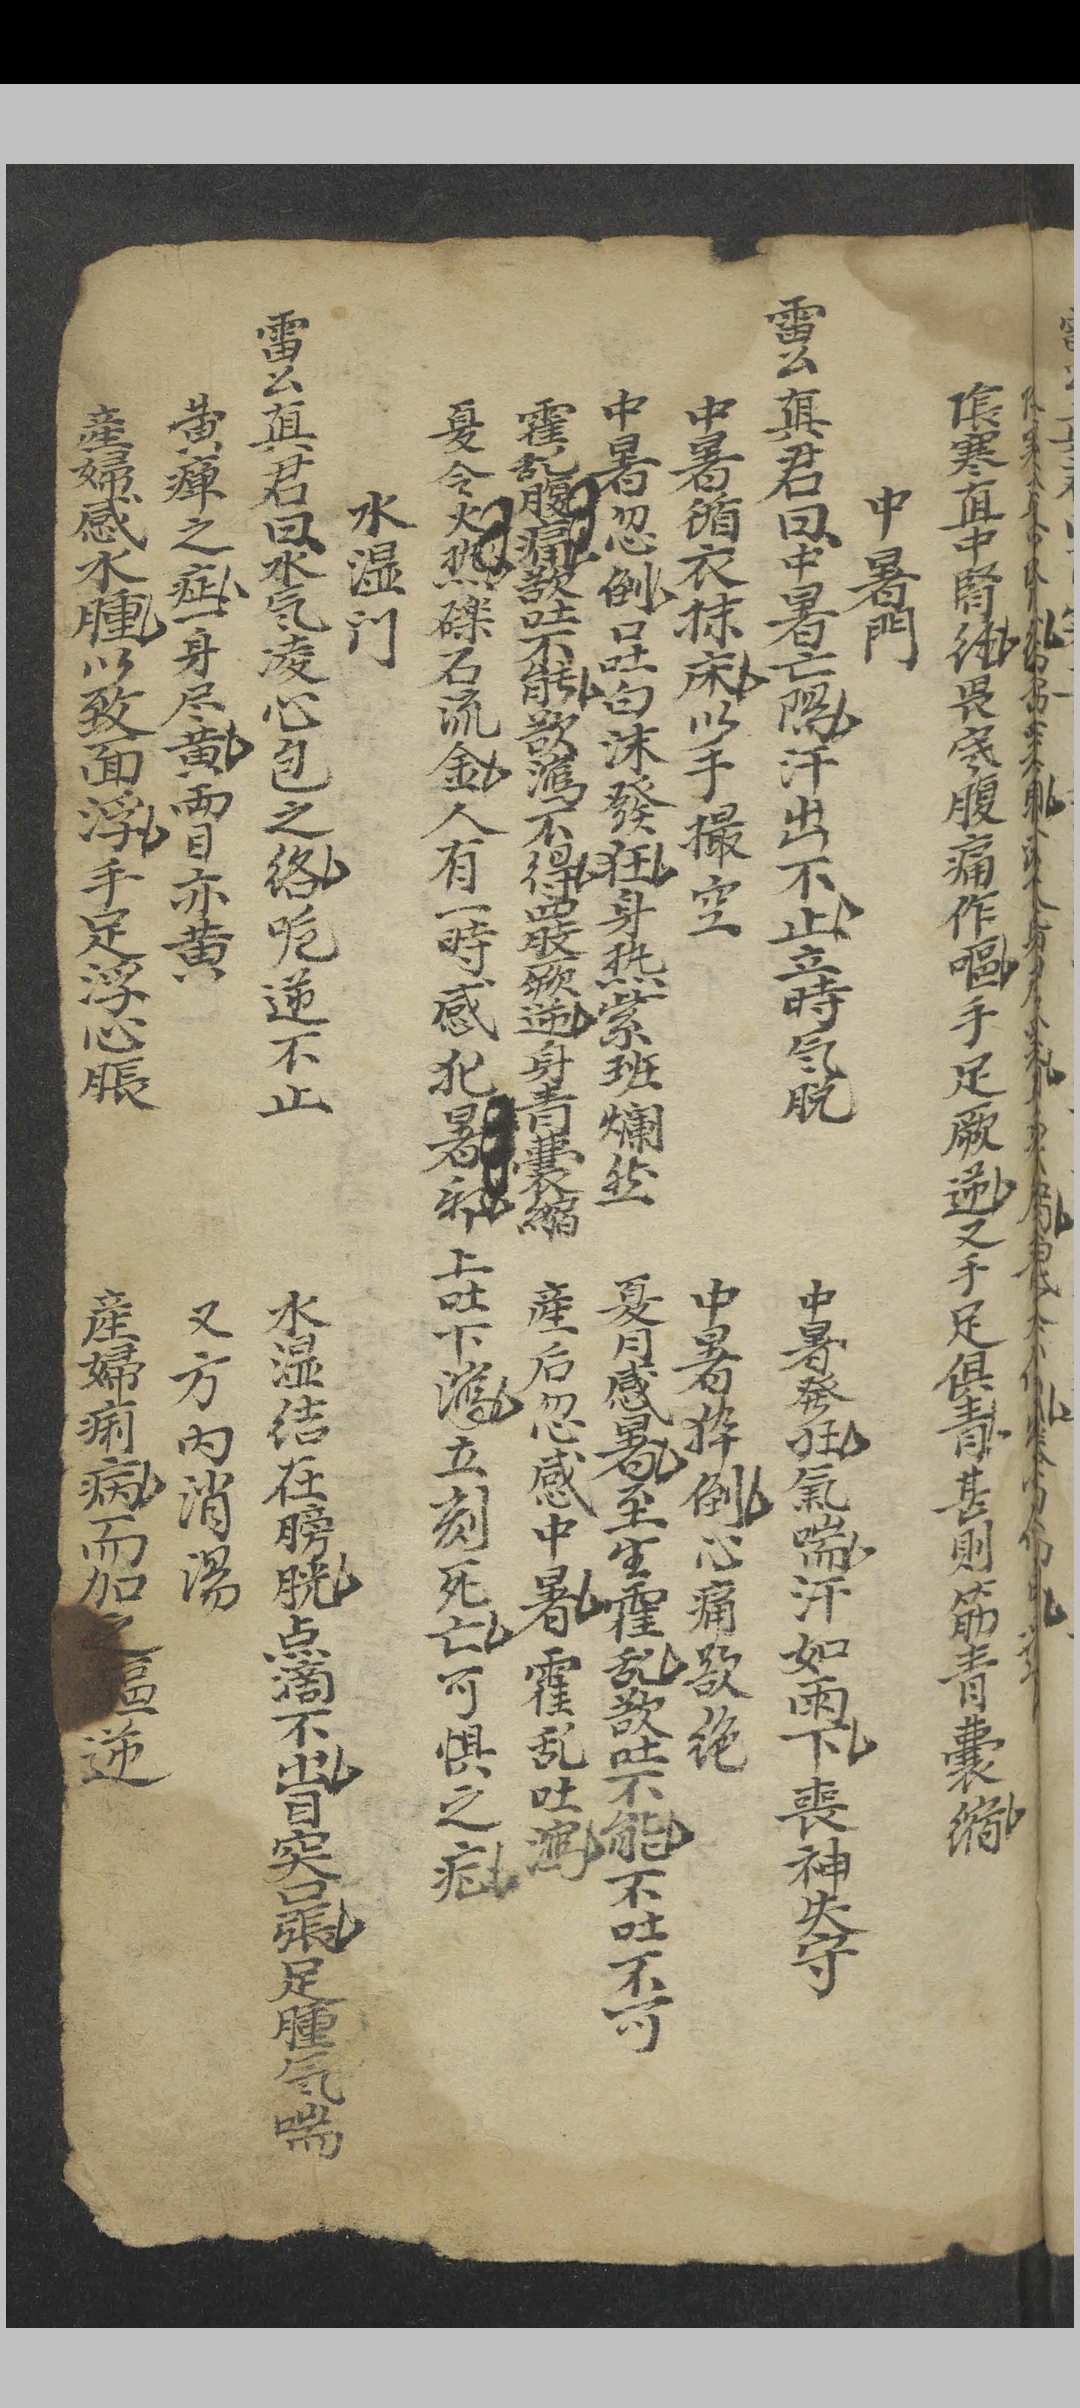 陰寒直中腎経畏寒腹痛作嘔手足厥逆又手足俱青甚則筋青囊縮
中暑門
雷公真君曰中暑亡陽汗出不止立時气脱 中暑發狂氣喘汗如雨下喪神失守
中暑循衣抹床以手撮空 中暑猝倒心痛欲绝
中暑忽倒口吐白沫發狂身热紫班爛然 夏月感暑至生霍乱欲吐不能不吐不可
霍乱腹痛欲吐不能欲瀉不得四肢厥逆身青囊縮 産后忽感中暑霍乱吐瀉
夏令火热礫石流金人有一時感犯暑邪上吐下瀉立刻死亡可惧之症
水湿门
雷公真君曰水气凌心包之络呃逆不止 水湿结在膀胱点滴不出目突口張足腫气喘
黄疸之症一身尽黄两目亦黄 又方内消湯
産婦感水腫以致面浮手足浮心脹 産婦痢病而加之逆